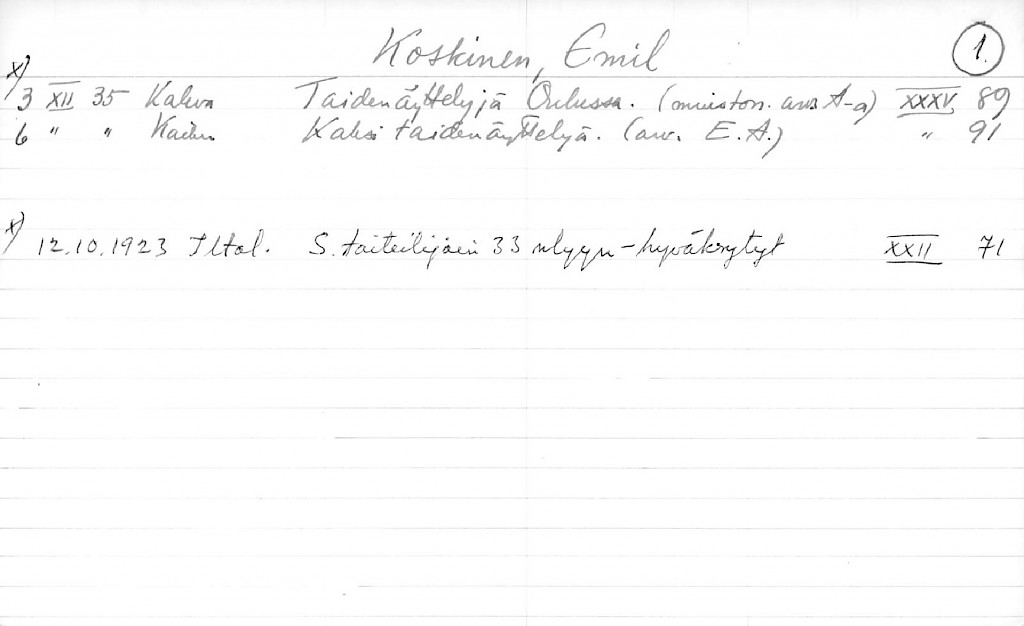 Koskinen, Emil
1.
x)
3 XII 35 Kaleva Taidenäyttelyjä Oulussa. (muiston. arv. A-a) XXXV 89
6 " " Kaiku Kaksi taidenäyttelyä. (arv. E.A.) " 91
x)
12.10.1923 Iltal. S. taiteilijain 33 näyttely - hyväksytyt XXII 71